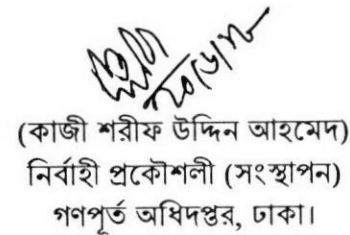 (কাজী শরীফ উদ্দিন আহমেদ)
নির্বাহী প্রকৌশলী (সংস্থাপন)
গণপূর্ত অধিদপ্তর, ঢাকা।